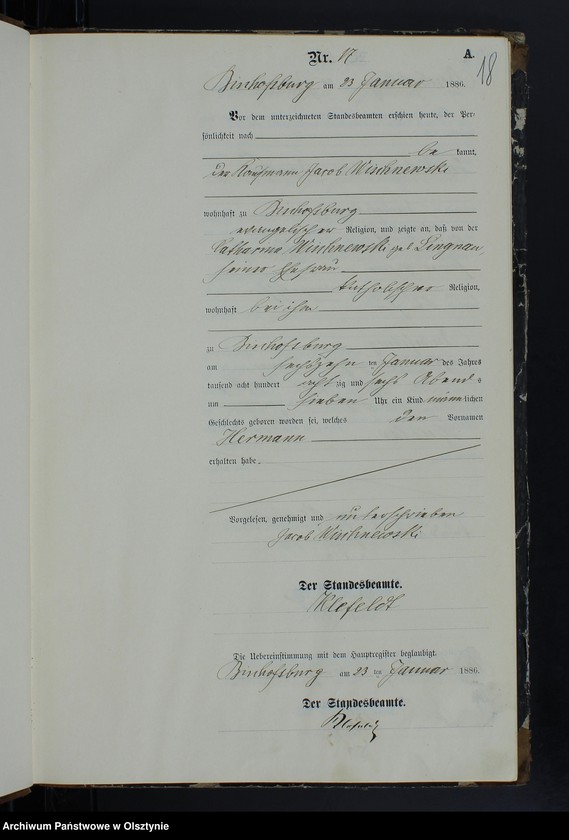 Nr. 17
A.
18
Bischofsburg am 23 Januar 1886.
Vor dem unterzeichneten Standesbeamten erschien heute, der Per-
sönlichkeit nach
be kannt,
der Kaufmann Jacob Wischnewski
wohnhaft zu Bischofsburg
evangelischer Religion, und zeigte an, daß von der
Catharina Wischnewski geb Lingnau,
seiner Ehefrau
katholischer Religion,
wohnhaft bei ihm
zu Bischofsburg
am sechszehn ten Januar des Jahres
tausend acht hundert acht zig und sechs Abend s
um sieben Uhr ein Kind männlichen
Geschlechts geboren worden sei, welches den Vornamen
Hermann
erhalten habe.
Vorgelesen, genehmigt und unterschrieben
Jacob Wischnewski
Der Standesbeamte.
Klofeldt
Die Uebereinstimmung mit dem Hauptregister beglaubigt.
Bischofsburg am 23 ten Januar 1886.
Der Standesbeamte.
Klofeldt
Archiwum Państwowe w Olsztynie